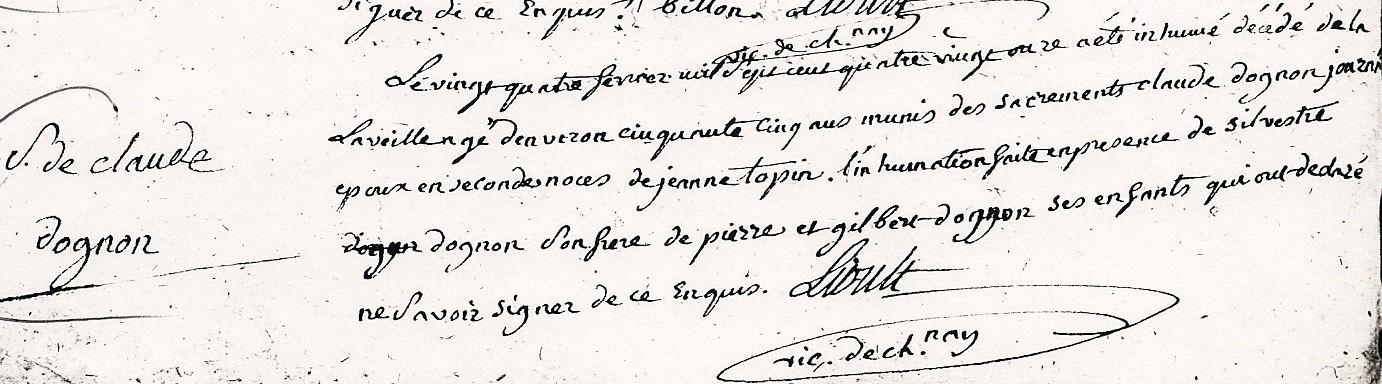 signer de ce Enquis. billon. Lioult
vic. de ch.nay
Le vingt quatre fevrier mil Sept cent quatre vingt onze a été inhumé décédé de la
S. de claude
Laveille agé denviron cinquante cinq ans munis des sacrements claude dognon journ
epoux en seconde noces de jeanne topin. l'inhumation faite en presence de silvestre
dognon
dognon son frere de pierre et gilbert dognon ses enfants qui ont declaré
ne Savoir signer de ce Enquis. Lioult
vic. de ch.nay